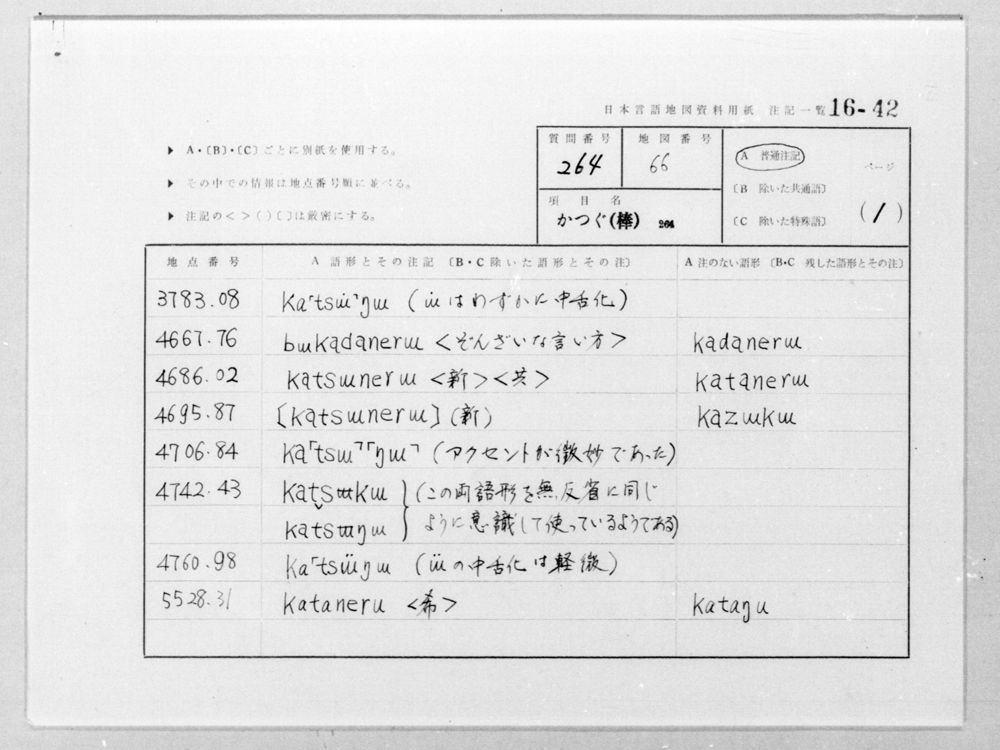 日本言語地図資料用紙 注記一覧 16-42
▶ A・〔B〕・〔C〕ごとに別紙を使用する。
▶ その中での情報は地点番号順に並べる。
▶ 注記の< >( )〔 〕は厳密にする。
質問番号 264
地図番号 66
項目名 かつぐ(棒) 264
A 普通注記
〔B 除いた共通語〕
〔C 除いた特殊語〕
ページ
(1)
地点番号 A 語形とその注記 〔B・C 除いた語形とその注〕 A 注のない語形 〔B・C 残した語形とその注〕
3783.08 ka⌜tsɯ̈⌝ŋɯ (ɯ̈はわずかに中舌化)
4667.76 bɯkadanerɯ <ぞんざいな言い方> kadanerɯ
4686.02 katsɯnerɯ <新><共> katanerɯ
4695.87 [katsɯnerɯ] (新) kazɯkɯ
4706.84 ka⌜tsɯ⌝⌜ŋɯ⌝ (アクセントが微妙であった)
4742.43 katsɯkɯ } (この両語形を無反省に同じ
katsɯŋɯ ように意識して使っているようである)
4760.98 ka⌜tsɯ̈ŋɯ (ɯ̈の中舌化は軽微)
5528.31 kataneru <希> kataŋu